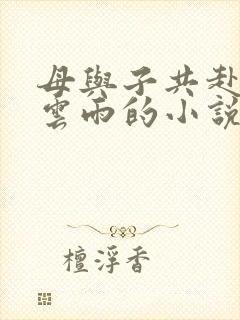 母與子共赴
雲雨的小說
檀浮香